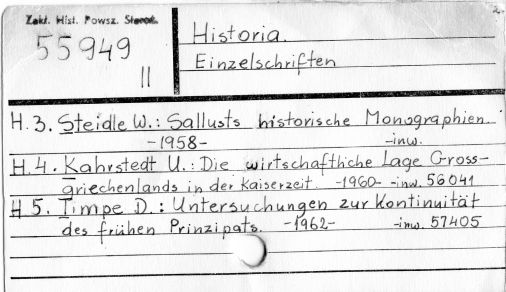 Zakł. Hist. Powsz. Staroż.
55949
II
Historia.
Einzelschriften
H.3. Steidle W.: Sallusts historische Monographien.
-1958- -inw.
H.4. Kahrstedt U.: Die wirtschaftliche Lage Gross-
griechenlands in der Kaiserzeit. -1960- -inw. 56041
H 5. Timpe D.: Untersuchungen zur Kontinuität
des frühen Prinzipats. -1962- -inw. 57405